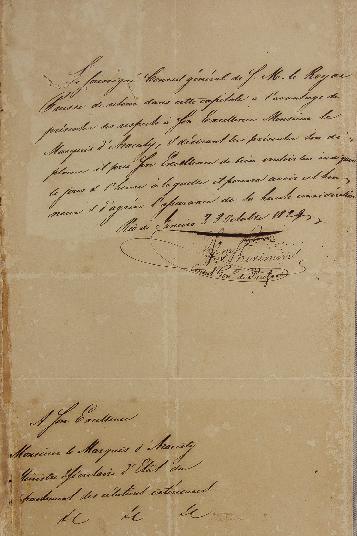 Le soussigné Consul général de S. M. le Roy de
Prusse de retour dans cette capitale a l'avantage de
présenter ses respects à Son Excellence Monsieur le
Marquis d'Aracaty, et désirant lui présenter son di-
plome il prie Son Excellence de bien vouloir lui indiquer
le jour et l'heure à laquelle il pourra avoir cet hon-
neur et d'agréer l'assurance de sa haute considération
Rio de Janeiro 2 Octobre 1824
Consul Gen. de Prusse
A Son Excellence
Monsieur le Marquis d'Aracaty
Ministre Secrétaire d'Etat du
partement des relations extérieures
&c &c &c